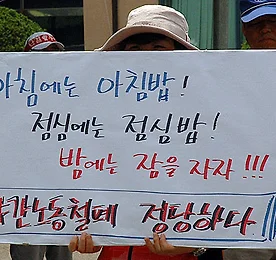 아침에는 아침밥!
점심에는 점심밥!
밤에는 잠을 자자!!!
야간노동철폐 정당하다!!